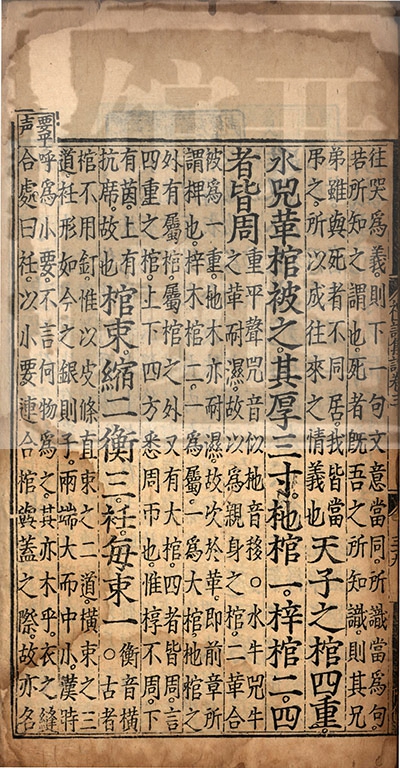 往哭爲義。則下一句文意當同。所識當爲句。
若所知之謂也。死者旣吾之所知識。則其兄
弟雖與死者不同居。我皆當
弔之。所以成往來之情義也
天子之棺四重。
水兕革棺被之。其厚三寸。杝棺一。梓棺二。四
者皆周
重平聲兕音似杝音移○水牛兕牛
之革耐濕。故以爲親身之棺。二革合
被爲一重。杝木亦耐濕。故次於革。即前章所
謂椑也。梓木棺二。一爲屬。一爲大棺。杝棺之
外有屬棺。屬棺之外又有大棺。四者皆周。言
四重之棺。上下四方悉周帀也。惟椁不周。下
有茵。上有
抗席。故也
棺束。縮二衡三。衽。每束一
衡音橫
○古者
棺不用釘。惟以皮條直束之二道。橫束之三
道。衽形如今之銀則子。兩端大而中小。漢時
呼爲小要。不言何物爲之。其亦木乎。衣之縫
合處曰衽。以小要連合棺與蓋之際。故亦名
要平
声